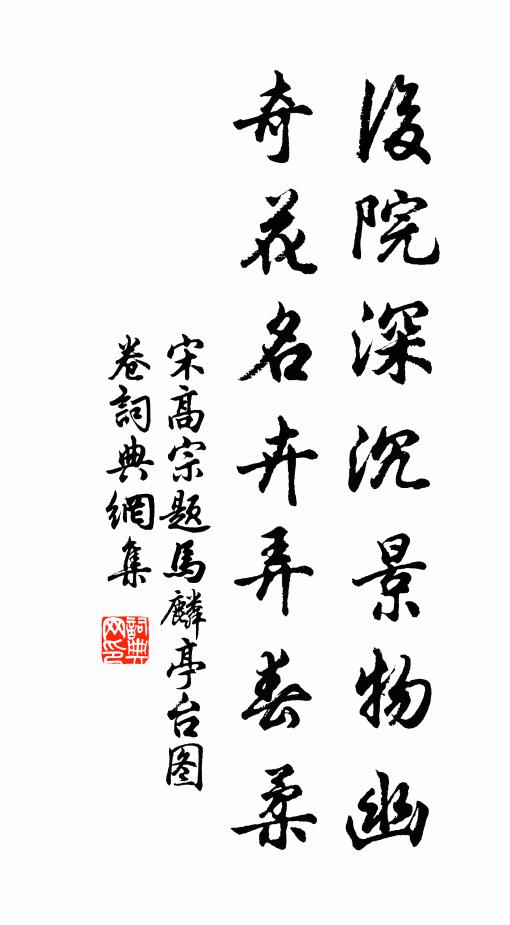 後院深沉景物幽
奇花名卉弄春柔
宋高宗題馬麟亭台图
卷詞典網集
詞典网印